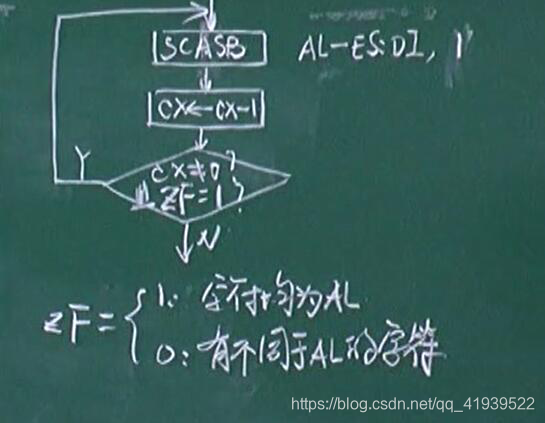 SCASB AL-ES:DI,
CX←CX-1
CX≠0?
ZF=1?
Y
N
ZF={
1: 字符均为AL
0: 有不同于AL的字符
https://blog.csdn.net/qq_41939522